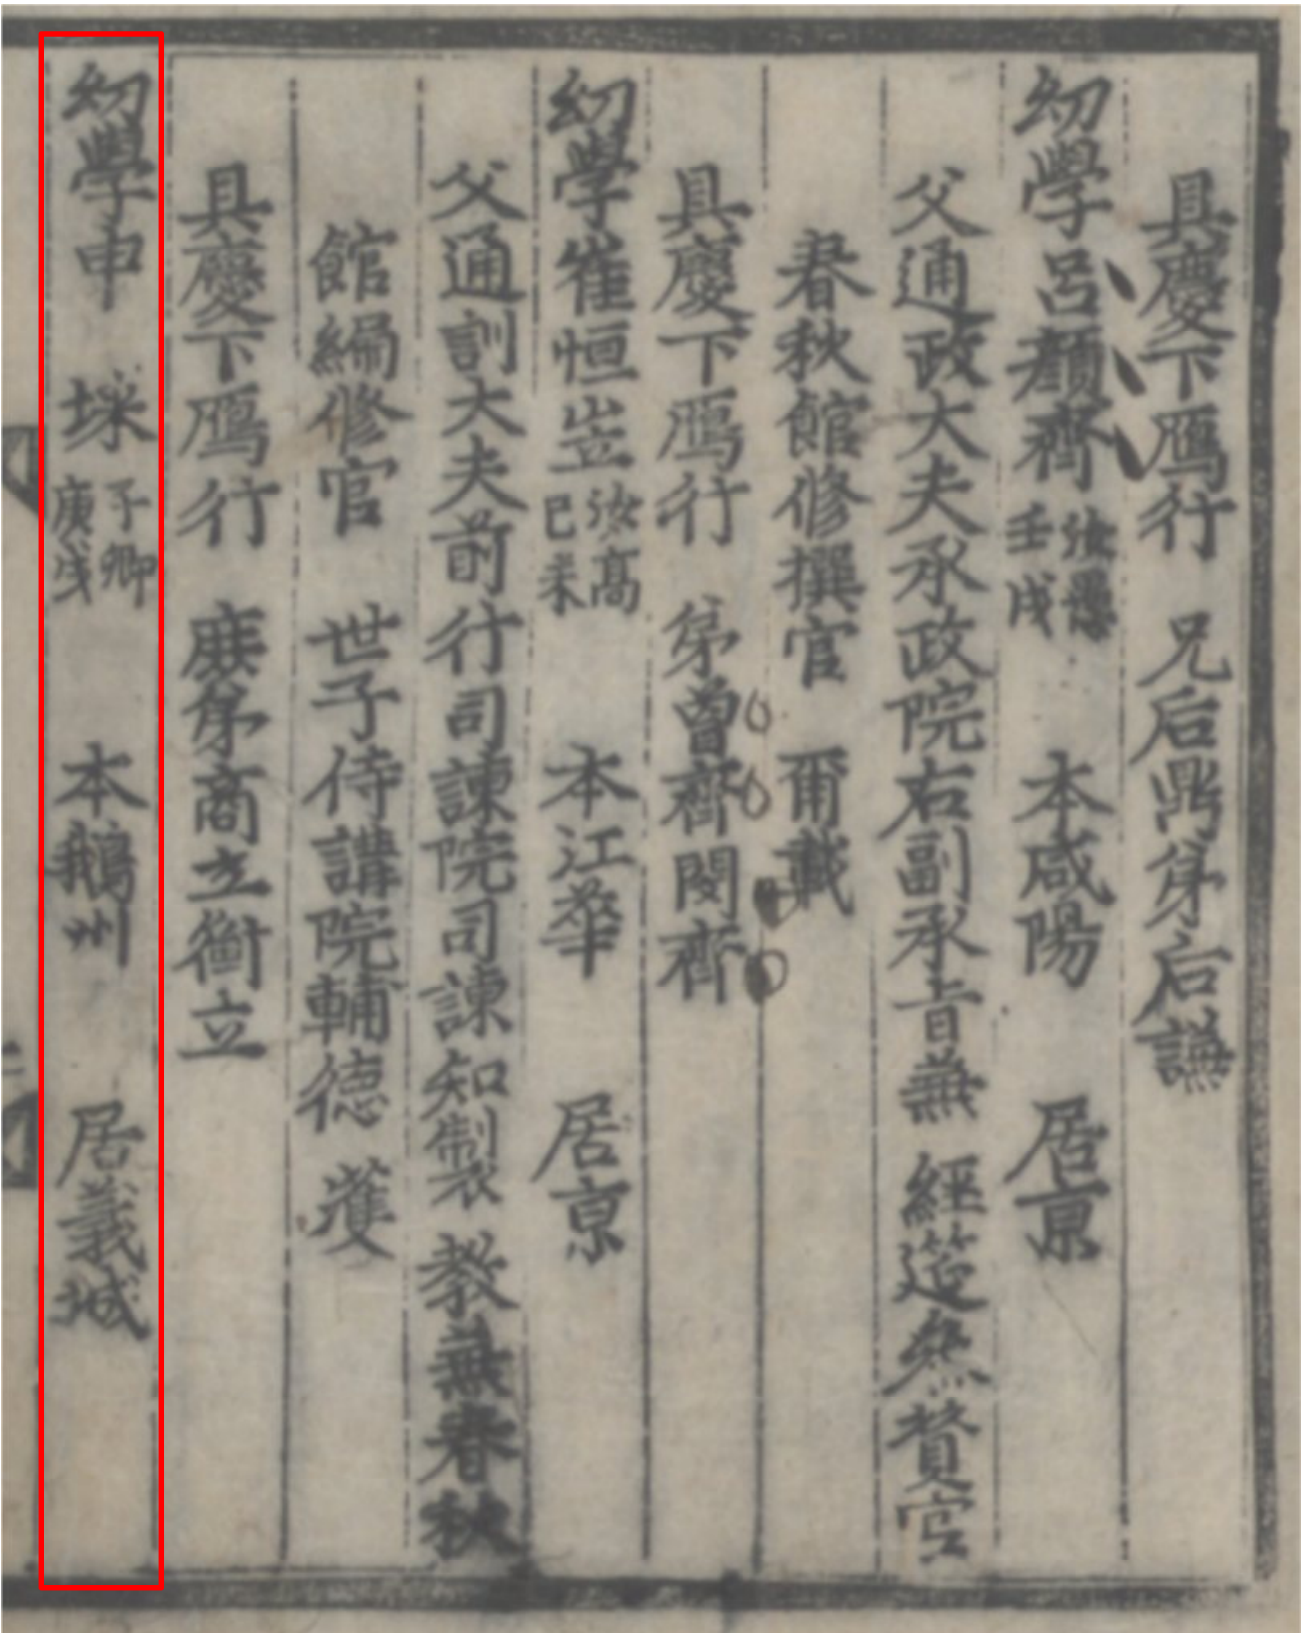 具慶下鴈行 兄后鼎弟后謙
幼學呂顔齊 汝愚 壬戌 本咸陽 居京
父通政大夫承政院右副承旨兼 經筵叅贊官
春秋館修撰官 爾載
具慶下鴈行 弟曾齊閔齊
幼學崔恒岦 汝高 己未 本江華 居京
父通訓大夫前行司諫院司諫知製 教兼春秋
館編修官 世子侍講院輔德 濩
具慶下鴈行 庶弟商立衡立
幼學申 埰 子卿 庚戌 本鵝州 居義城